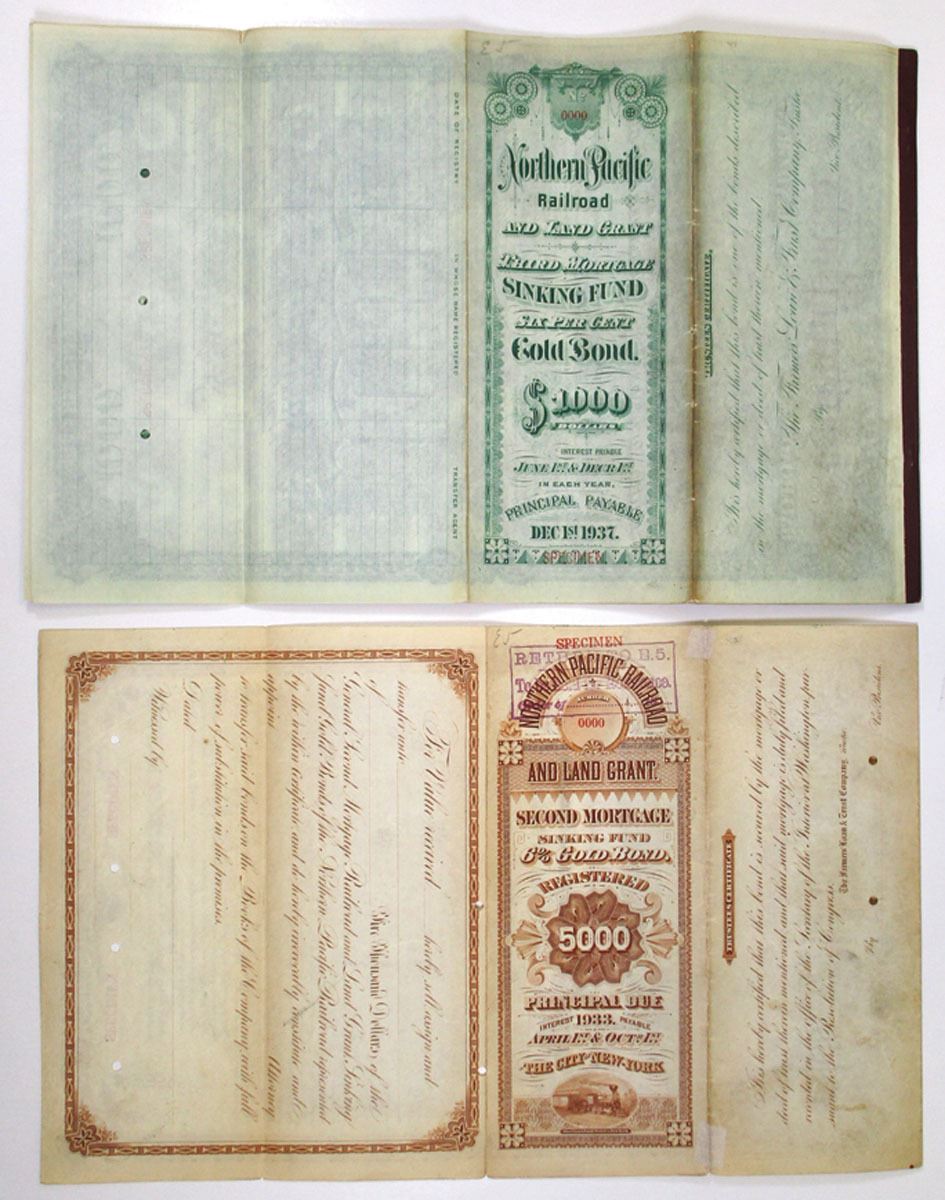 E5
0000
Northern Pacific
Railroad
AND LAND GRANT
THIRD MORTGAGE
SINKING FUND
SIX PER CENT
Gold Bond.
$1000
DOLLARS
INTEREST PAYABLE
JUNE 1ST & DECR 1ST
IN EACH YEAR,
PRINCIPAL PAYABLE
DEC 1ST 1937.
SPECIMEN
DATE OF REGISTRY
IN WHOSE NAME REGISTERED
TRANSFER AGENT
TRUSTEE'S CERTIFICATE.
It is hereby certified that this bond is one of the bonds described
in the mortgage or deed of trust therein mentioned
The Farmers Loan & Trust Company, Trustee
By
Vice President.
E5
SPECIMEN
NORTHERN PACIFIC RAILROAD
NUMBER
0000
AND LAND GRANT.
SECOND MORTGAGE
SINKING FUND
6% GOLD BOND.
REGISTERED
5000
PRINCIPAL DUE
1933.
INTEREST PAYABLE
APRIL 1ST & OCTR 1ST
THE CITY OF NEW-YORK
For Value received
hereby sell assign and
transfer unto
of
Five Thousand Dollars of the
General Second Mortgage Railroad and Land Grant Sinking
Fund Gold Bonds of the Northern Pacific Railroad represented
by the within Certificate and do hereby irrevocably constitute and
appoint Attorney
to transfer said bonds on the Books of the Company, with full
power of substitution in the premises.
Dated
Witnessed by
TRUSTEES CERTIFICATE
It is hereby certified that this bond is secured by the mortgage or
deed of trust therein mentioned and that said mortgage is duly filed and
recorded in the office of the Secretary of the Interior at Washington, pur-
suant to the Resolution of Congress.
The Farmers Loan & Trust Company, Trustee
By
Vice President.